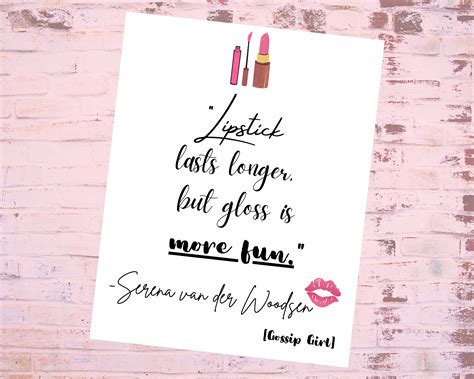 "Lipstick
lasts longer,
but gloss is
more fun."
-Serena van der Woodsen
[Gossip Girl]